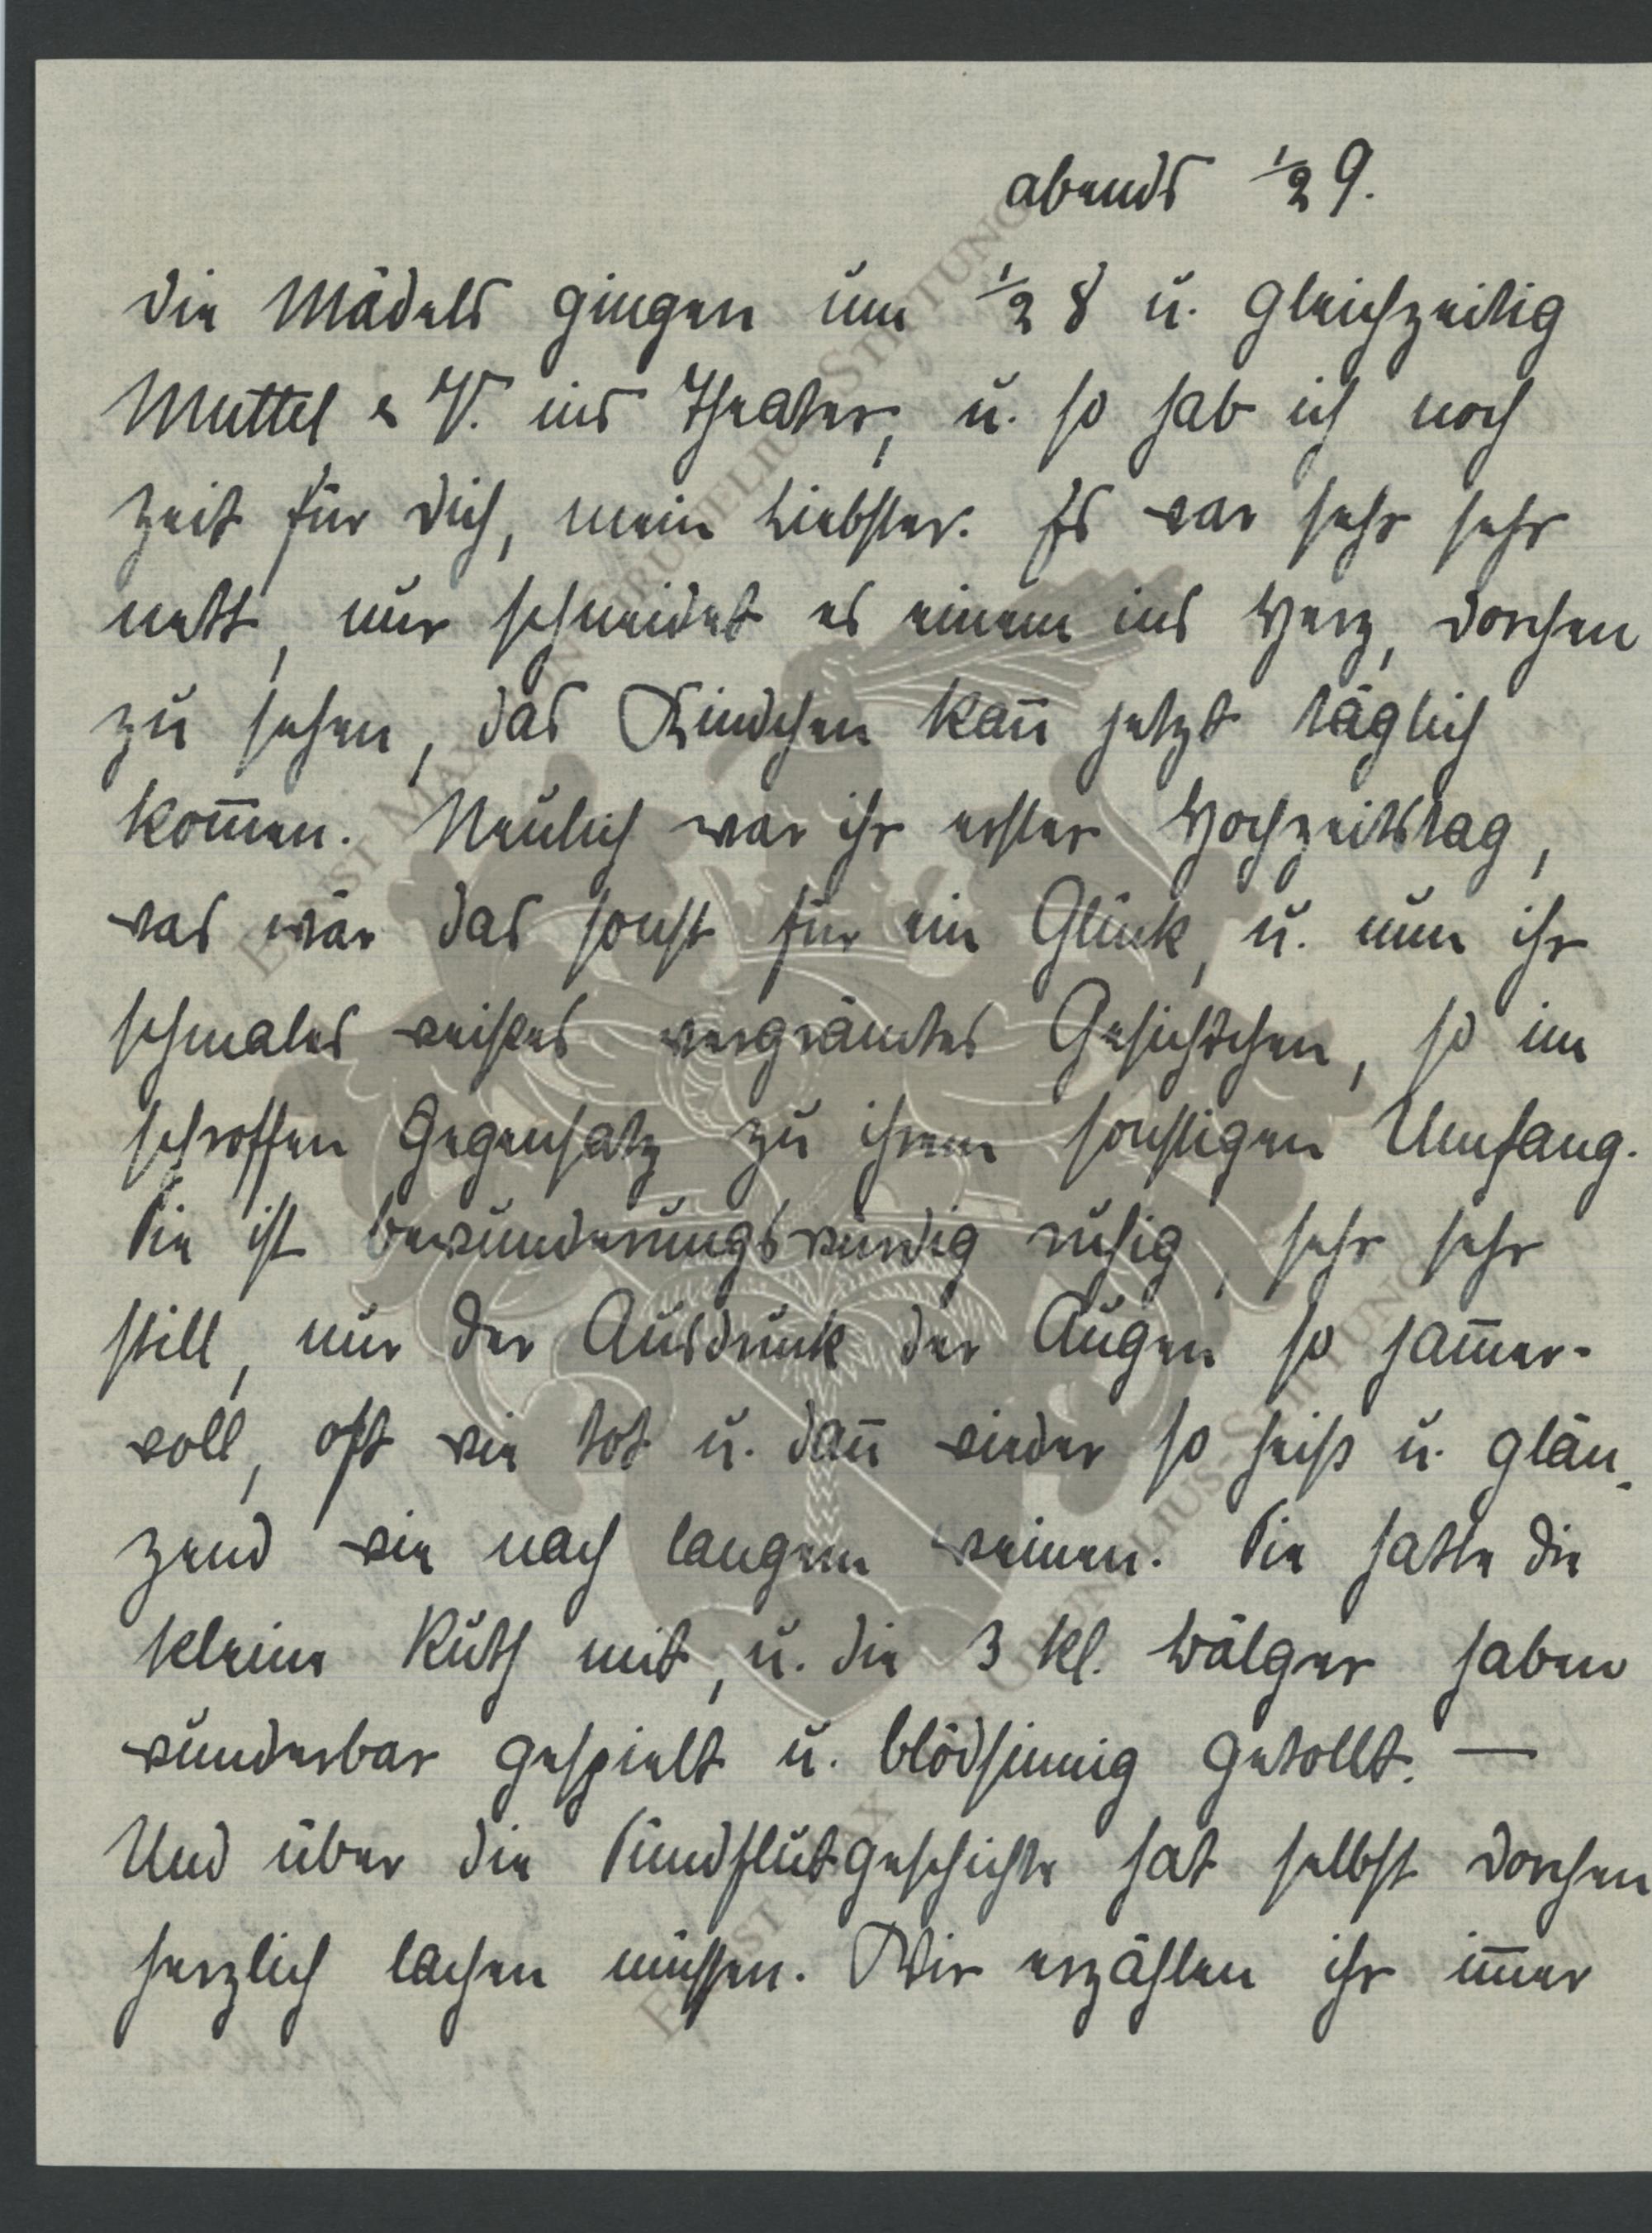 abends ½ 9.
Die Mädels gingen um ½ 8 u. gleichzeitig
Muttel & V. ins Theater, u. so hab ich noch
Zeit für Dich, mein Liebster. Es war sehr sehr
nett, nur schneidet es einem ins Herz, Dorchen
zu sehen, das Kindchen kañ jetzt täglich
kom̄en. Neulich war ihr erster Hochzeitstag,
was wär das sonst für ein Glück, u. nun ihr
schmales weißes vergrämtes Gesichtchen, so im
schroffen Gegensatz zu ihrem sonstigen Umfang.
Sie ist bewunderungswürdig ruhig, sehr sehr
still, nur der Ausdruck der Augen so jam̄er-
voll, oft wie tot u. dañ wieder so heiß u. glän-
zend wie nach langem Weinen. Sie hatte die
kleine Ruth mit, u. die 3 kl. Bälger haben
wunderbar gespielt u. blödsinnig getollt. —
Und über die Sündflutgeschichte hat selbst Dorchen
herzlich lachen müssen. Wir erzählen ihr im̄er
ERNST MAX VON GRUNELIUS-STIFTUNG
ERNST MAX VON GRUNELIUS-STIFTUNG